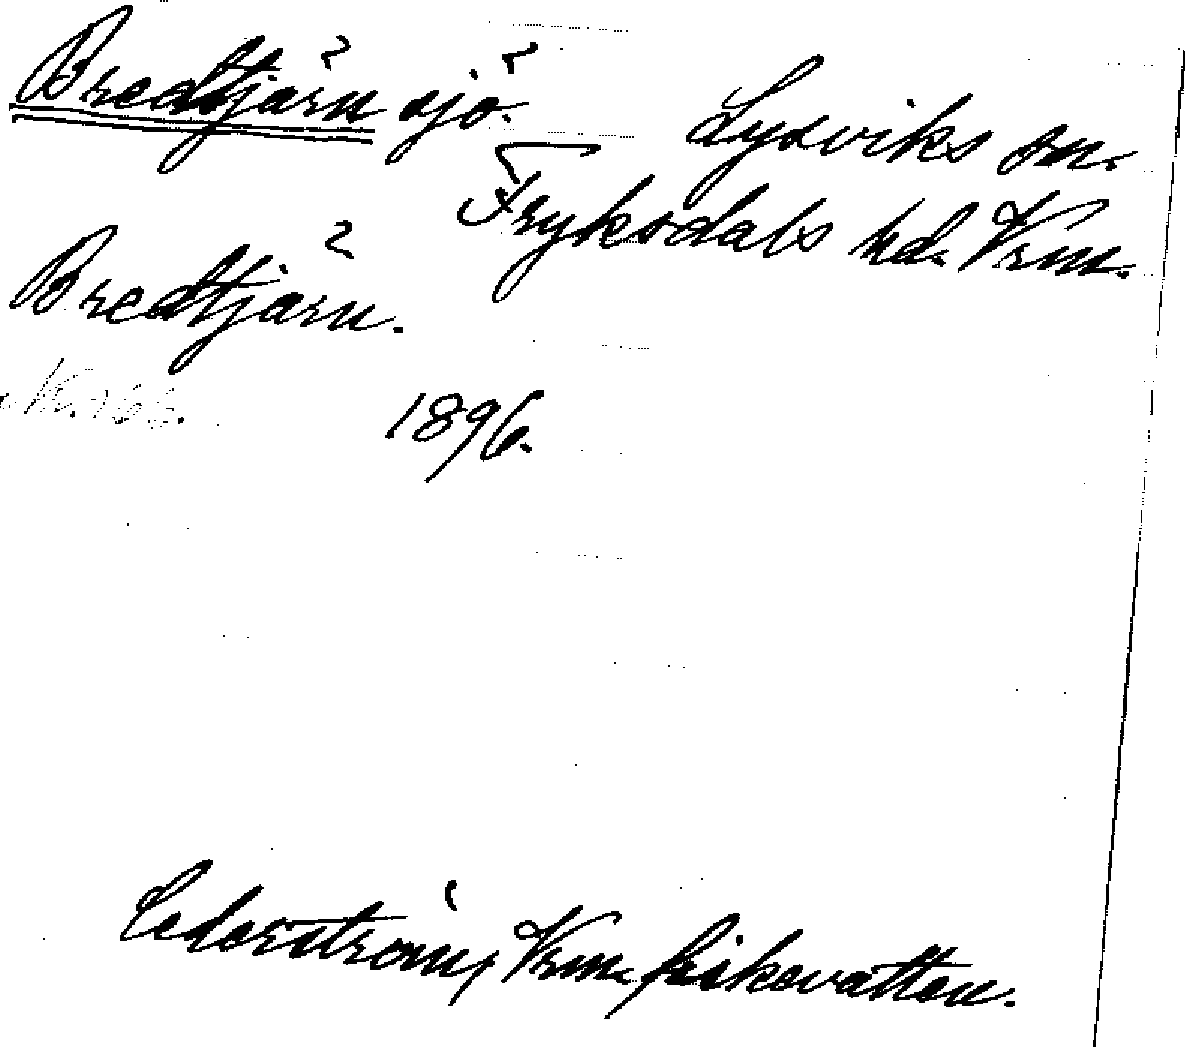 Bredtjärn sjö.
Lysviks sn.
Fryksdals hd. Vrm.
Bredtjärn.
1896.
Cederström, Vrm. fiskevatten.